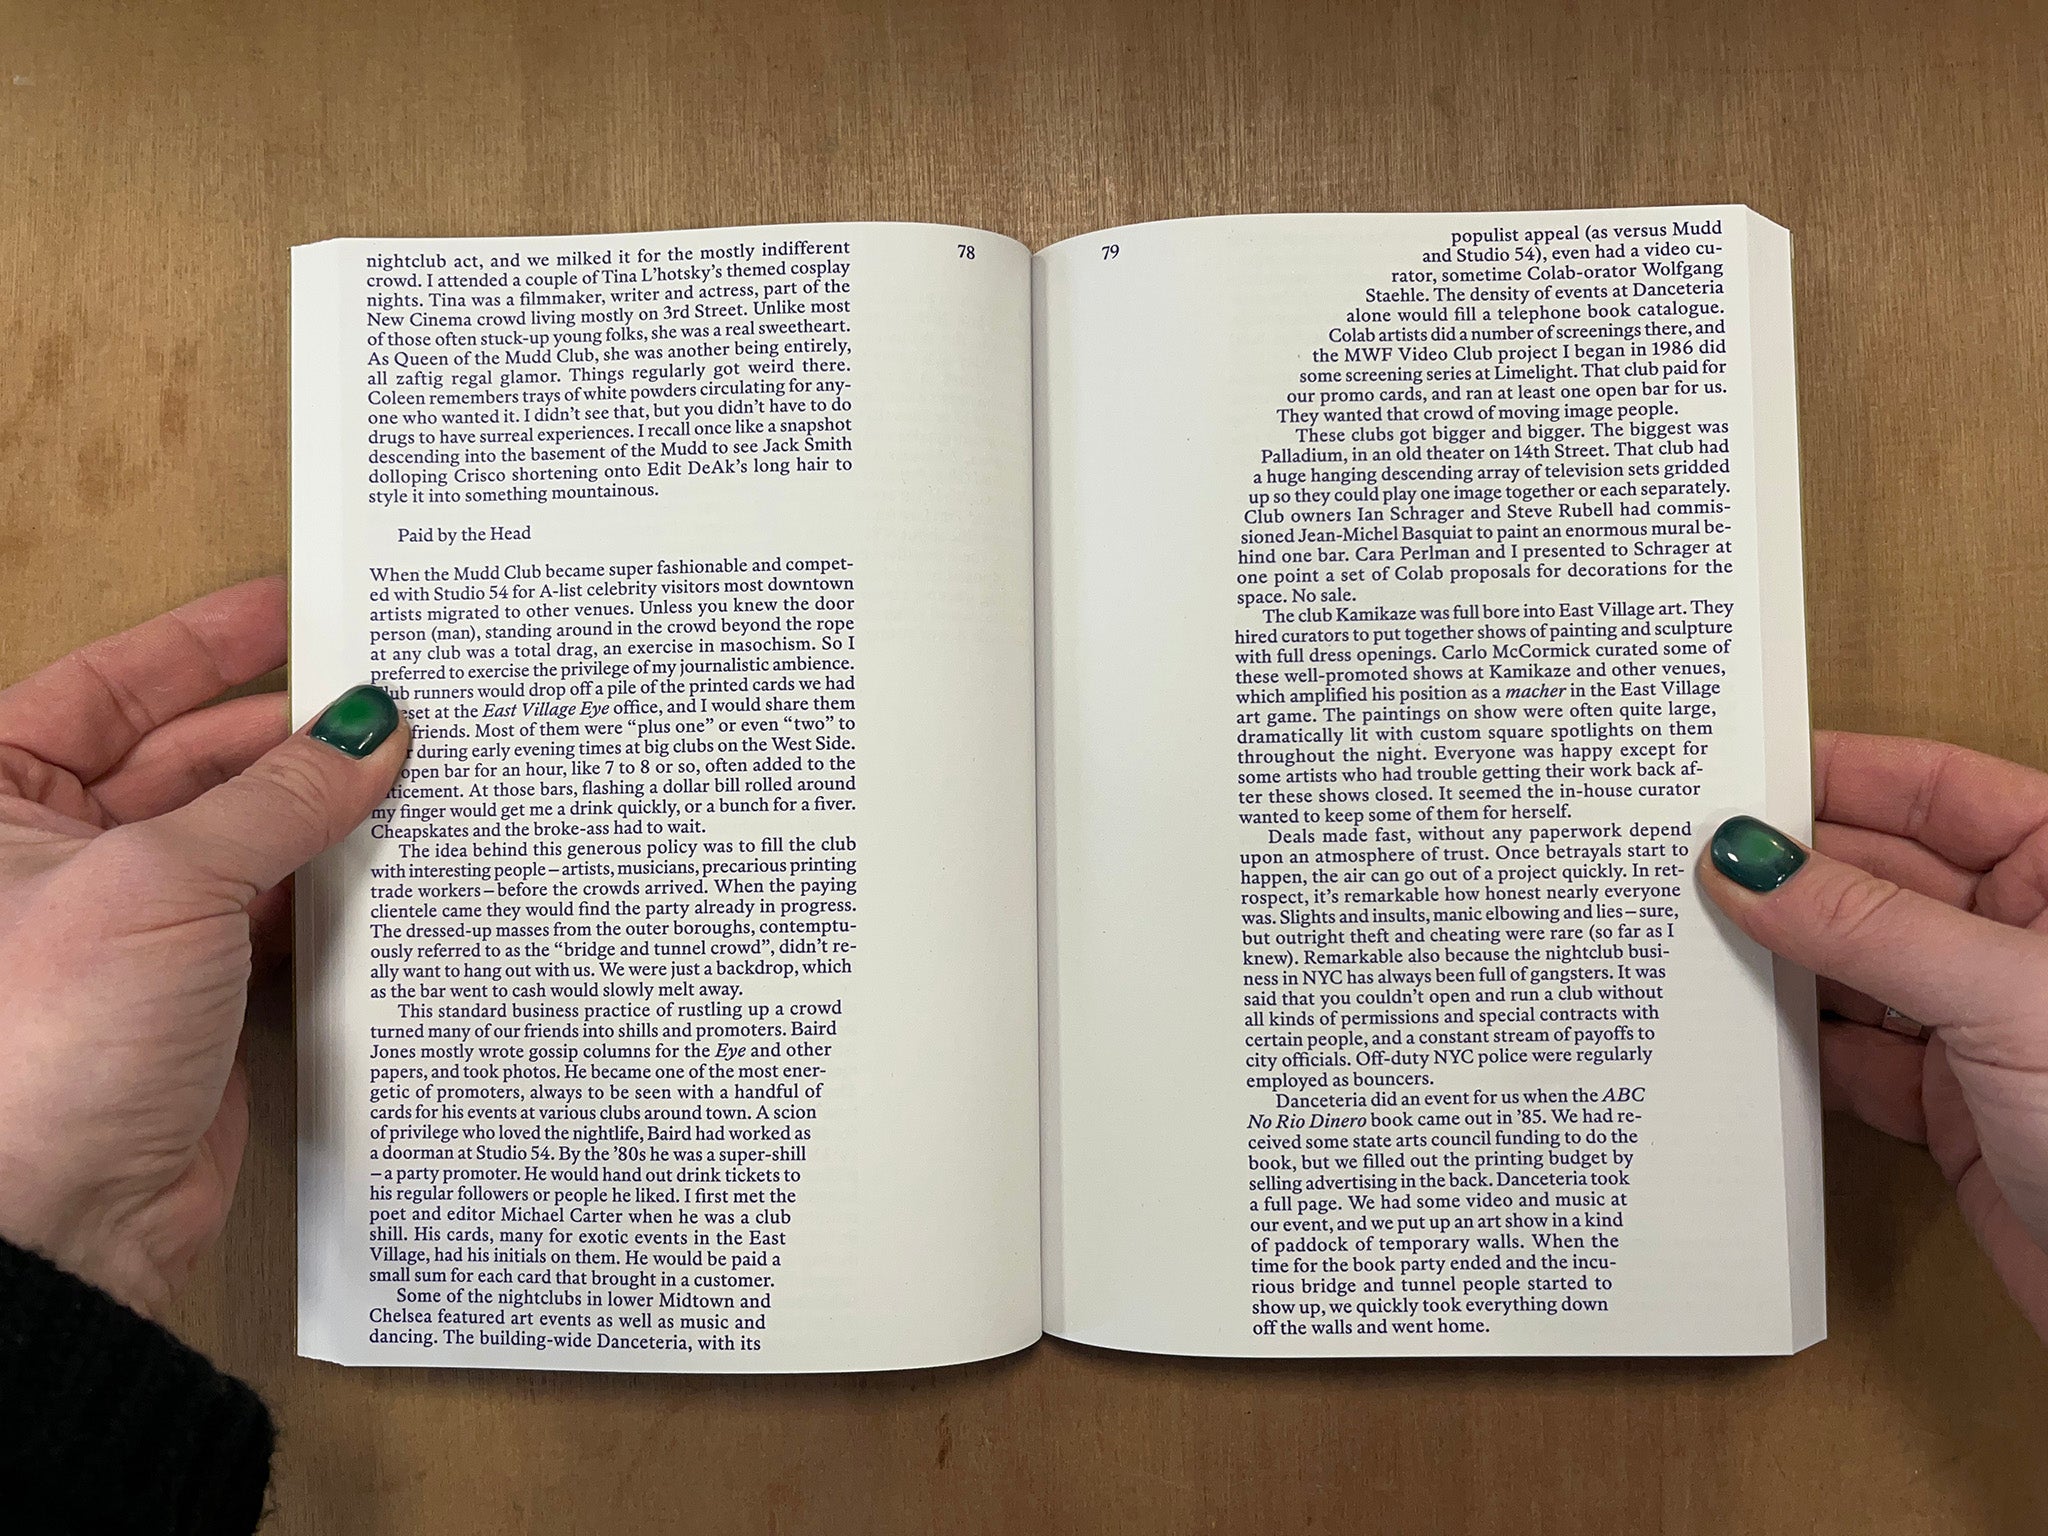 78
nightclub act, and we milked it for the mostly indifferent
crowd. I attended a couple of Tina L’hotsky’s themed cosplay
nights. Tina was a filmmaker, writer and actress, part of the
New Cinema crowd living mostly on 3rd Street. Unlike most
of those often stuck-up young folks, she was a real sweetheart.
As Queen of the Mudd Club, she was another being entirely,
all zaftig regal glamor. Things regularly got weird there.
Coleen remembers trays of white powders circulating for any-
one who wanted it. I didn’t see that, but you didn’t have to do
drugs to have surreal experiences. I recall once like a snapshot
descending into the basement of the Mudd to see Jack Smith
dolloping Crisco shortening onto Edit DeAk’s long hair to
style it into something mountainous.
Paid by the Head
When the Mudd Club became super fashionable and compet-
ed with Studio 54 for A-list celebrity visitors most downtown
artists migrated to other venues. Unless you knew the door
person (man), standing around in the crowd beyond the rope
at any club was a total drag, an exercise in masochism. So I
preferred to exercise the privilege of my journalistic ambience.
runners would drop off a pile of the printed cards we had
at the East Village Eye office, and I would share them
friends. Most of them were “plus one” or even “two” to
during early evening times at big clubs on the West Side.
open bar for an hour, like 7 to 8 or so, often added to the
At those bars, flashing a dollar bill rolled around
my finger would get me a drink quickly, or a bunch for a fiver.
Cheapskates and the broke-ass had to wait.
The idea behind this generous policy was to fill the club
with interesting people – artists, musicians, precarious printing
trade workers – before the crowds arrived. When the paying
clientele came they would find the party already in progress.
The dressed-up masses from the outer boroughs, contemptu-
ously referred to as the “bridge and tunnel crowd”, didn’t re-
ally want to hang out with us. We were just a backdrop, which
as the bar went to cash would slowly melt away.
This standard business practice of rustling up a crowd
turned many of our friends into shills and promoters. Baird
Jones mostly wrote gossip columns for the Eye and other
papers, and took photos. He became one of the most ener-
getic of promoters, always to be seen with a handful of
cards for his events at various clubs around town. A scion
of privilege who loved the nightlife, Baird had worked as
a doorman at Studio 54. By the ’80s he was a super-shill
– a party promoter. He would hand out drink tickets to
his regular followers or people he liked. I first met the
poet and editor Michael Carter when he was a club
shill. His cards, many for exotic events in the East
Village, had his initials on them. He would be paid a
small sum for each card that brought in a customer.
Some of the nightclubs in lower Midtown and
Chelsea featured art events as well as music and
dancing. The building-wide Danceteria, with its
79
populist appeal (as versus Mudd
and Studio 54), even had a video cu-
rator, sometime Colab-orator Wolfgang
Staehle. The density of events at Danceteria
alone would fill a telephone book catalogue.
Colab artists did a number of screenings there, and
the MWF Video Club project I began in 1986 did
some screening series at Limelight. That club paid for
our promo cards, and ran at least one open bar for us.
They wanted that crowd of moving image people.
These clubs got bigger and bigger. The biggest was
Palladium, in an old theater on 14th Street. That club had
a huge hanging descending array of television sets gridded
up so they could play one image together or each separately.
Club owners Ian Schrager and Steve Rubell had commis-
sioned Jean-Michel Basquiat to paint an enormous mural be-
hind one bar. Cara Perlman and I presented to Schrager at
one point a set of Colab proposals for decorations for the
space. No sale.
The club Kamikaze was full bore into East Village art. They
hired curators to put together shows of painting and sculpture
with full dress openings. Carlo McCormick curated some of
these well-promoted shows at Kamikaze and other venues,
which amplified his position as a macher in the East Village
art game. The paintings on show were often quite large,
dramatically lit with custom square spotlights on them
throughout the night. Everyone was happy except for
some artists who had trouble getting their work back af-
ter these shows closed. It seemed the in-house curator
wanted to keep some of them for herself.
Deals made fast, without any paperwork depend
upon an atmosphere of trust. Once betrayals start to
happen, the air can go out of a project quickly. In ret-
rospect, it’s remarkable how honest nearly everyone
was. Slights and insults, manic elbowing and lies – sure,
but outright theft and cheating were rare (so far as I
knew). Remarkable also because the nightclub busi-
ness in NYC has always been full of gangsters. It was
said that you couldn’t open and run a club without
all kinds of permissions and special contracts with
certain people, and a constant stream of payoffs to
city officials. Off-duty NYC police were regularly
employed as bouncers.
Danceteria did an event for us when the ABC
No Rio Dinero book came out in ’85. We had re-
ceived some state arts council funding to do the
book, but we filled out the printing budget by
selling advertising in the back. Danceteria took
a full page. We had some video and music at
our event, and we put up an art show in a kind
of paddock of temporary walls. When the
time for the book party ended and the incu-
rious bridge and tunnel people started to
show up, we quickly took everything down
off the walls and went home.